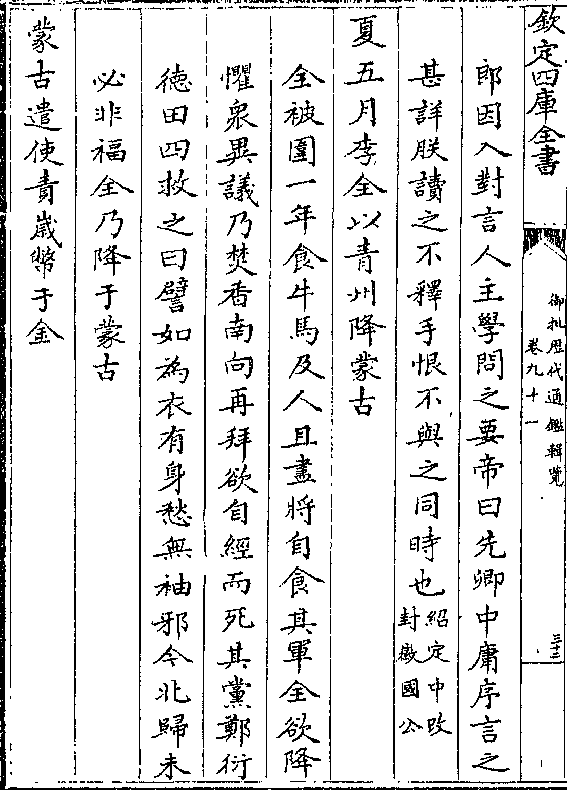 欽定四庫全書
御批歴代通鑑輯覽
卷九十一
三十二
郎因入對言人主學問之要帝曰先卿中庸序言之
甚詳朕讀之不釋手恨不與之同時也紹定中改
封徽國公
夏五月李全以青州降蒙古
全被圍一年食牛馬及人且盡將自食其軍全欲降
懼衆異議乃焚香南向再拜欲自經而死其黨鄭衍
徳田四救之曰譬如為衣有身愁無袖邪今北歸未
必非福全乃降于蒙古
蒙古遣使責歲幣于金